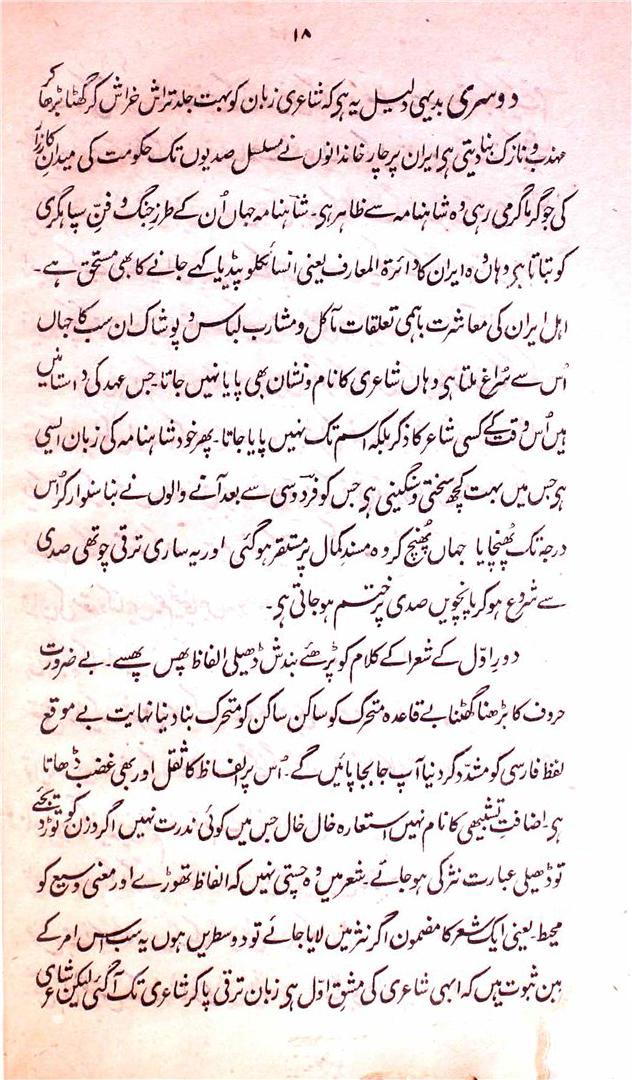 ۱۸
دوسری بدیہی دلیل یہ ہی کہ شاعری زبان کو بہت جلد تراش خراش کر گھٹا بڑھا کر
مہذب و نازک بنا دیتی ہی ایران پر چار خاندانوں نے مسلسل صدیوں تک حکومت کی میدانِ کارزار
کی جو گرما گرمی رہی وہ شاہنامہ سے ظاہر ہی۔ شاہنامہ جہاں اُن کے طرز جنگ و فنِ سپاہگری
کو بتاتا ہی وہاں وہ ایران کا دائرۃ المعارف یعنی انسائکلوپیڈیا کہے جانے کا بھی مستحق ہے۔
اہل ایران کی معاشرت باہمی تعلقات مآکل و مشارب لباس و پوشاک ان سب کا جہاں
اُس سے سُراغ ملتا ہی وہاں شاعری کا نام و نشان بھی پایا نہیں جاتا۔ جس عہد کی داستانیں
ہیں اُس وقت کے کسی شاعر کا ذکر بلکہ اسم تک نہیں پایا جاتا۔ پھر خود شاہنامہ کی زبان ایسی
ہی جس میں بہت کچھ سختی و سنگینی ہی جس کو فردوسی سے بعد آنے والوں نے بنا سنوار کر اُس
درجہ تک پُھنچایا جہاں پُھنچ کر وہ مسندِ کمال پر مستقر ہو گئی اور یہ ساری ترقی چوتھی صدی
سے شروع ہو کر پانچویں صدی پر ختم ہو جاتی ہی۔
دور اوّل کے شعرا کے کلام کو پڑھئے بندش ڈھیلی الفاظ پھس پھسے۔ بے ضرورت
حروف کا بڑھنا گھٹنا بے قاعدہ متحرک کو ساکن ساکن کو متحرک بنا دینا نہایت بے موقع
لفظ فارسی کو مشدّد کر دینا آپ جا بجا پائیں گے۔ اُس پر الفاظ کا ثقل اور بھی غضب ڈھاتا
ہی۔ اضافتِ تشبیہی کا نام نہیں استعارہ خال خال جس میں کوئی ندرت نہیں اگر وزن کو توڑ دیجئے
تو ڈھیلی عبارت نثر کی ہو جائے۔ شعر میں وہ چستی نہیں کہ الفاظ تھوڑے اور معنی وسیع کو
محیط۔ یعنی ایک شعر کا مضمون اگر نثر میں لایا جائے تو دو سطریں ہوں یہ سب اس امر کے
بین ثبوت ہیں کہ ابہی شاعری کی مشق اوّل ہی زبان ترقی پا کر شاعری تک آ گئی لیکن